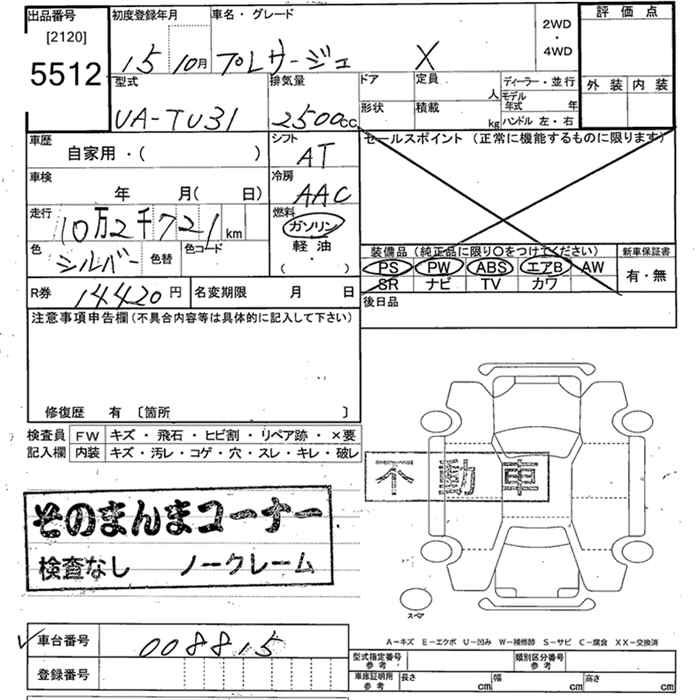 出品番号 初度登録年月 車名・グレード 2WD・4WD 評価点
[2120]
5512 15 10月 プレサージュ X
型式 排気量 ドア 定員 人 ディーラー・並行 外装 内装
モデル年式 年
UA-TU31 2500cc 形状 積載 kg ハンドル 左・右
車歴 シフト セールスポイント (正常に機能するものに限ります)
自家用・( ) AT
車検 冷房
年 月( 日) AAC
走行 燃料
10万2千721km ガソリン
色 色替 色コード 軽油 装備品 (純正品に限り○をつけてください) 新車保証書
シルバー ( ・ ) PS PW ABS エアB AW 有・無
SR ナビ TV カワ
R券 14420円 名変期限 月 日 後日品
注意事項申告欄 (不具合内容等は具体的に記入して下さい)
修復歴 有 [箇所 ]
検査員 FW キズ・飛石・ヒビ割・リペア跡・×要
記入欄 内装 キズ・汚レ・コゲ・穴・スレ・キレ・破レ
不動車
そのまんまコーナー
検査なし ノークレーム
スペア
A-キズ E-エクボ U-凹み W-補修跡 S-サビ C-腐食 XX-交換済
✓車台番号 008815 型式指定番号 参考 類別区分番号 参考
登録番号 車庫証明用 参考 長さ cm 幅 cm 高さ cm